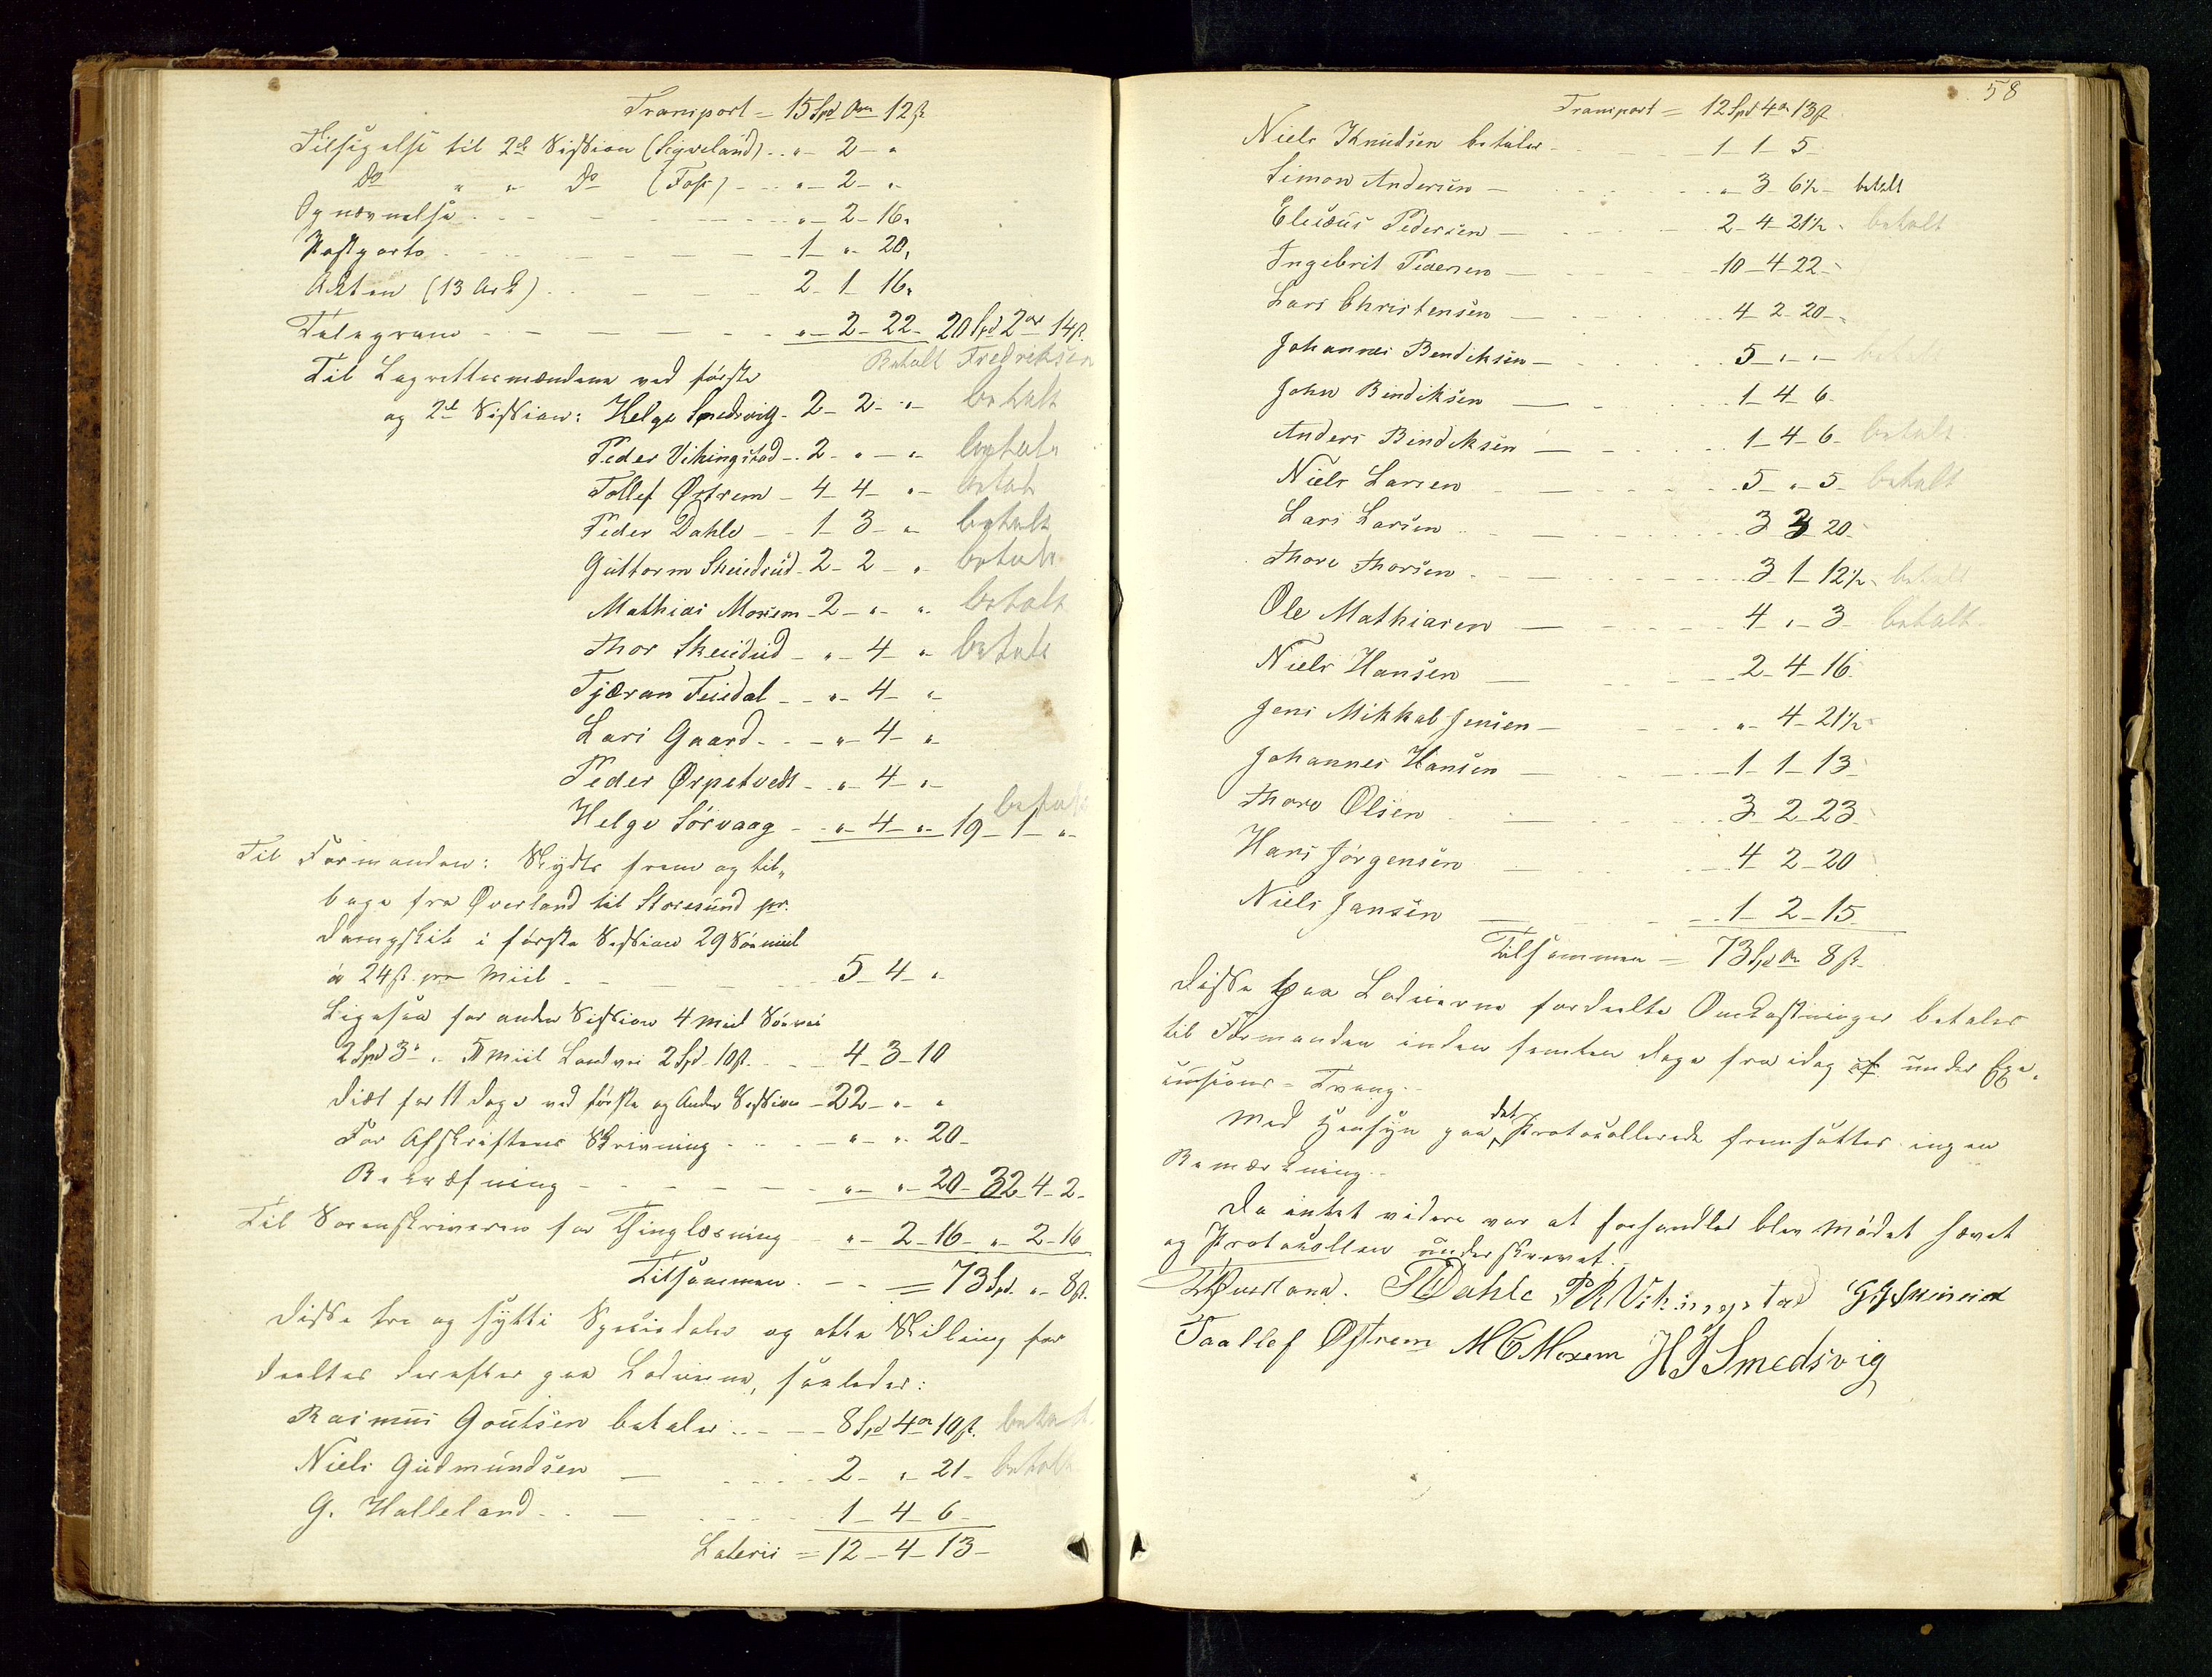 Transport = 15 Spd 0 Or 12 ß
Tilsigelse til 2de Session (Liqveland) . . " 2 "
Do " " Do (Foss) - - " 2 "
Opnævnelse - - - " 2 16
Postporto - - - 1 " 20
Akten (13 Ark) - - - 2 1 16
Telegram - - - " 2 22 20 Spd 2 Or 14 ß
Betalt Fredriksen
Til Lagrettesmændene ved første
og 2de Session: Helge Smedsvig - 2 2 " betalt
Peder Vikingstad - 2 " " betalt
Tollef Østrem - 4 4 " betalt
Peder Dahle - 1 3 " betalt
Guttorm Skeidsud - 2 2 " betalt
Mathias Moxem - 2 " " betalt
Thor Skeidsud - " 4 " betalt
Tjæran Feiedal - " 4 "
Lars Gaard - " 4 "
Peder Ørpetvedt - " 4 "
betalt
Helge Sørvaag - " 4 " 19 1 "
Til Formanden: Skyds frem og til-
bage fra Øverland til Storesund pr.
Dampskib i første Session 29 Sømiil
á 24 ß pr Miil - - - 5 4 "
Ligesaa for anden Session 4 Miil Søvei
2 Spd 3 " 5 Miil Landvei 2 Spd 10 ß - - 4 3 10
Diæt for 11 Dage ved første og Anden Session - 22 " "
For Afskriftens Skrivning - - " " 20
Bekræfning - - - " " 20 32 4 2
Til Sorenskriveren for Thinglæsning " 2 16 " 2 16
Tilsammen - - = 73 Spd " 8 ß
Disse tre og sytti Speciedaler og otte Skilling for
deeltes derefter paa Lodeierne, saaledes:
Rasmus Goutsen betaler - - 8 Spd 4 Or 10 ß betalt
Niels Gudmundsen — 2 " 21 betalt
G. Halleland - — 1 4 6
Lateris = 12 4 13
58
Transport = 12 Spd 4 Or 13 ß
Niels Knudsen betaler - 1 1 5
Simon Andersen — " 3 6½ betalt
Eliæus Pedersen — 2 4 21½ betalt
Ingebrit Pedersen — 10 4 22
Lars Christensen — 4 2 20
Johannes Bendiksen — 5 " " betalt
John Bendiksen — 1 4 6
Anders Bendiksen — 1 4 6 betalt
Niels Larsen — 5 " 5 betalt
Lars Larsen — 3 3 20
Thore Thorsen — 3 1 12½ betalt
Ole Mathiasen — 4 " 3 betalt
Niels Hansen — 2 4 16
Jens Mikkal Jensen — " 4 21½
Johannes Hansen — 1 1 13
Thore Olsen — 3 2 23
Hans Jørgensen — 4 2 20
Niels Jansen — 1 2 15
Tilsammen = 73 Spd Or 8 ß
Disse paa Lodeierne fordeelte Omkostninger betales
til Formanden inden femten Dage fra idag af under Exe-
cutions-Tvang.
Med Hensyn paa det Protocollerede fremsattes ingen
Bemærkning.
Da intet videre var at forhandles blev Mødet hævet
og Protocollen underskrevet.
Øverland. Dahle P R Vikingstad
Taallef Østrem M E Moxem H J Smedsvig